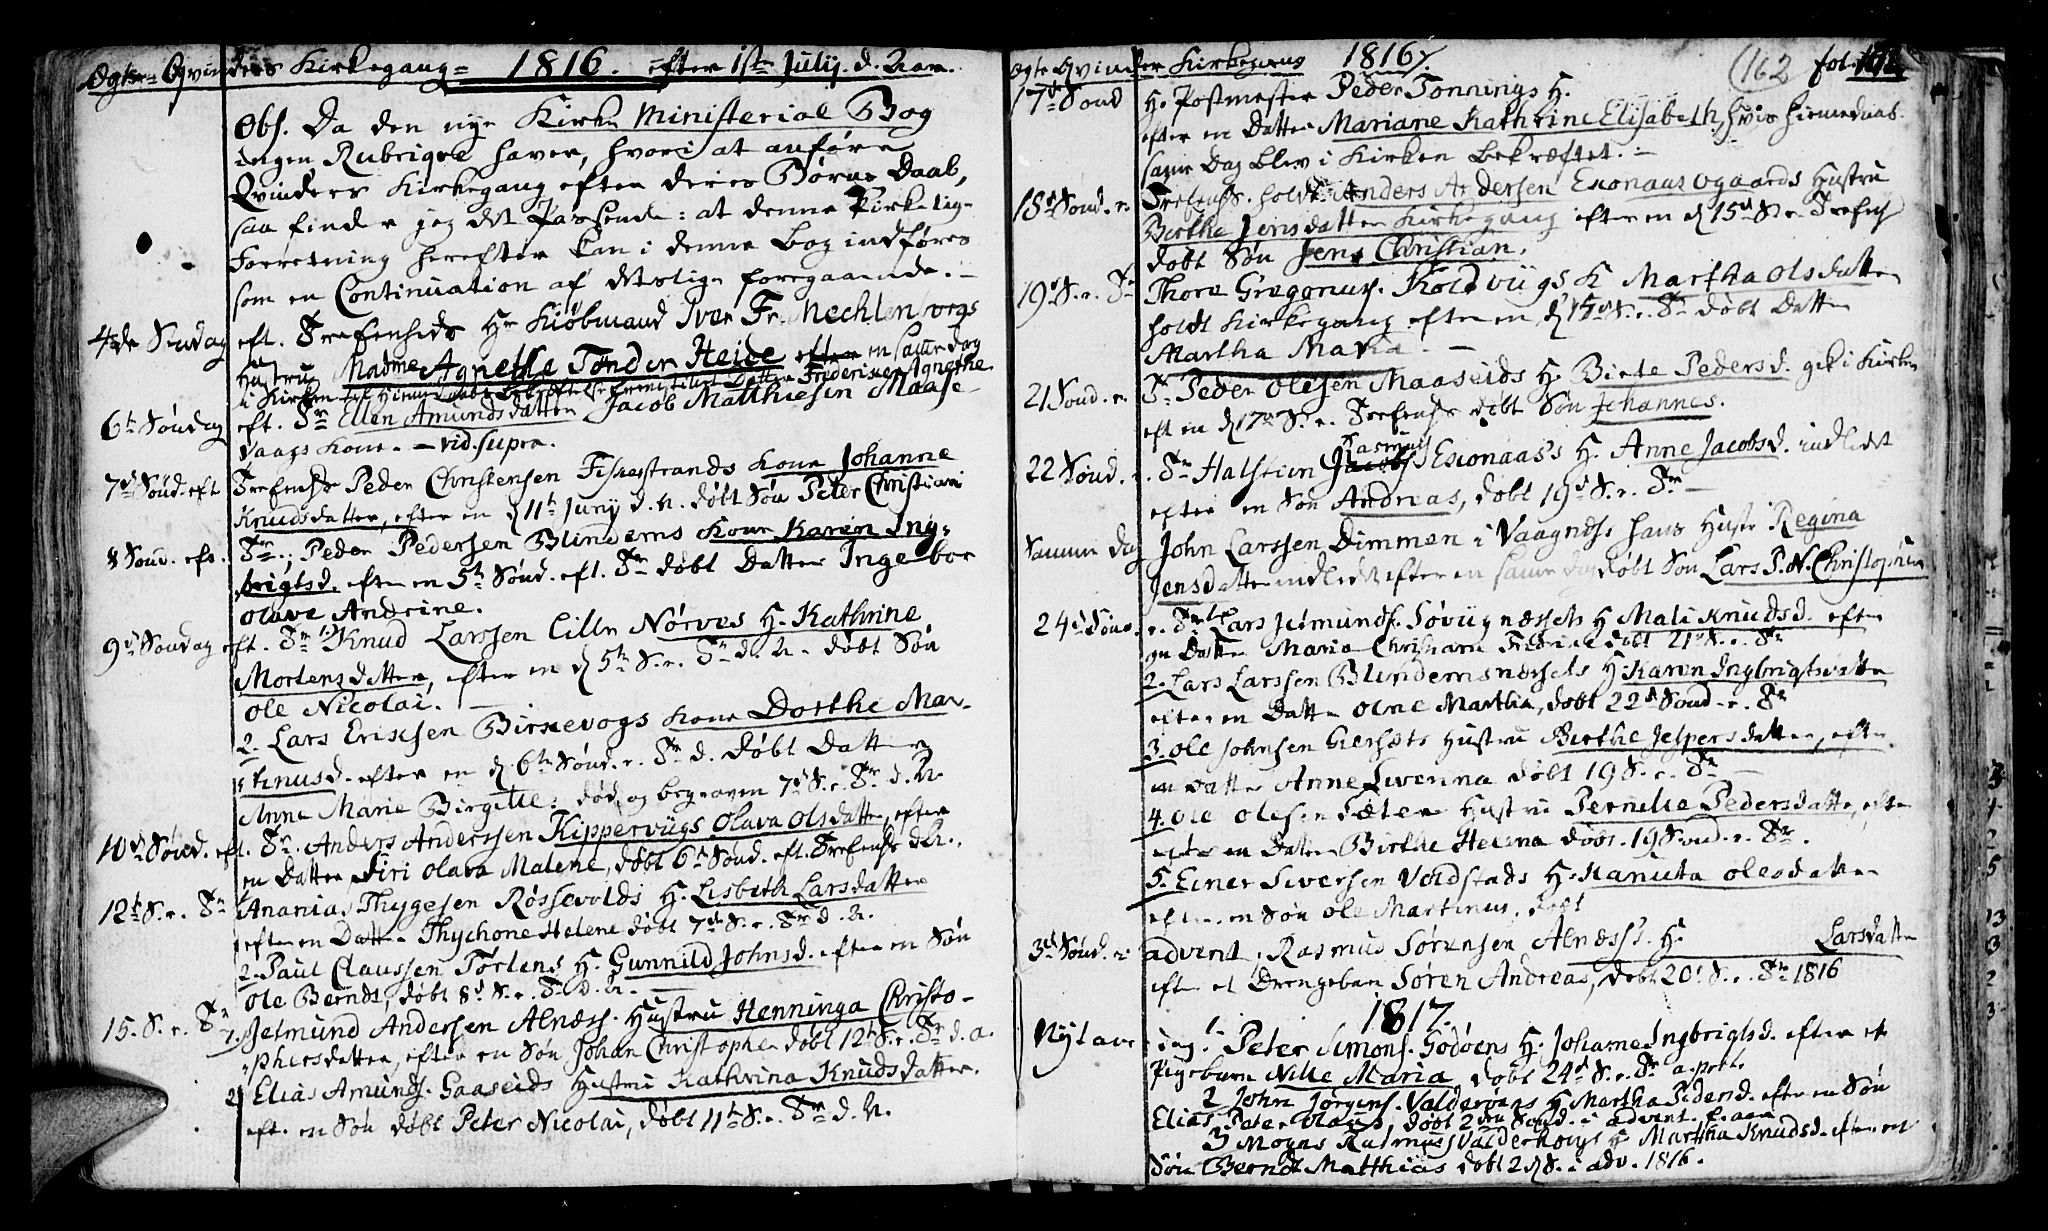 Ægte Qvinders Kirkegang = 1816. efter 1ste July. d. Aar.
Obs. Da den nye Kirke Ministerial Bog
ingen Rubriqve haver, hvori at anføre
Qvinders Kirkegang efter deres Børns Daab,
saa finder jeg det Passende: at denne Kirkelige
Forretning herefter kan i denne Bog indføres
som en Continuation af det foregaaende. -
4de Søndag eft. Trefenheds Hr Kiøbmand Iver Fr. Mechlenborgs
Hustru Madme Agnethe Tønder Heide efter en samme dag
i Kirken Datter Frederikke Agnethe
6te Søndag eft. Tr Ellen Amundsdatter Jacob Matthiesen Maase-
vaags Kone. - vid. supra.
7d Sønd. eft Trefenh Peder Christensen Fiskerstrands Kone Johanne
Knudsdatter, efter en d 11te Juny d. A. døbt Søn Peter Christian
8 Sønd. eft. Tr., Peder Pedersen Blindems Kone Karen Ing-
brigtsd. efter en 5te Sønd. eft. Tr døbt Datter Ingebor
Olave Andrine.
9d Søndag eft. Tr 1. Knud Larssen Lille Nørves H. Kathrine
Mortensdatter, efter en d 5te S. e. Tr d. A. døbt Søn
Ole Nicolai. -
2. Lars Erichsen Birkevogs Kone Dorthe Mar-
Knusd. efter en d 6te Sønd. e. Tr d. døbt Datter
Anne Marie Birgitte: død og begraven 7d S. e. Tr. d. A.
10d Sønd. eft. Tr. Anders Anderssen Kippervigs Olava Olsdatter, efter
en Datter Siri Olava Malene, døbt 6te Sønd. eft. Trefenh d. A.
12te S. e. Tr Ananias Thygesen Røssevolds H. Lisbeth Larsdatter
efter en Datter Thychone Helene døbt 7de S. e. Tr d. A.
2. Paul Claussen Torlens H. Gunnild Johnsd. efter en Søn
Ole Berndt, døbt 8d S. e. Tr d. A. -
15. S. e. Tr 1. Jetmund Andersen Alnæss. Hustru Henninga Christo-
phersdatter, efter en Søn Johan Christopher døbt 12te S. e. Tr d. a.
2 Elias Amunds. Gaaseids Hustru Kathrina Knudsdatter.
eft. en Søn døbt Peter Nicolai, døbt 11te S. e. Tr d. A.
Ægte Qvinders Kirkegang 1816. (162 fol.
17d Sønd H. Postmester Peder Tonnings H.
efter en Datter Mariane Kathrine Elisabeth, hvis Hiemedaab
samme Dag blev i Kirken bekræftet. -
18d Sønd. e. Trefenh. holdt Anders Andersen Exonaasvogaards Hustru
Birthe Jensdatter Kirkegang efter en d 15d S. e. Trefenh
døbt Søn Jens Christian.
19d S. e. Tr Thore Gregorius. Koldviigs K Martha Olsdatter
holdt Kirkegang efter en d 15d S. e. Tr døbt Datter
Martha Maria. -
21 Sønd. e. Tr Peder Olesen Maaseids H. Birte Pedersd. gik i Kirken
eft en d 17de S. e. Trefenh døbt Søn Johannes.
22 Sønd. e. Tr Halsteen Rasmus Exonaas's H. Anne Jacobsd. indledt
efter en Søn Andreas, døbt 19d S. e. Tr -
Samme Dag John Larssen Dimmen i Vaagnæs hans Hustru Regina
Jensdatter indledt efter en samme dag døbt Søn Lars P. N. Christopher
24d Sønd. e. Tr 1. Lars Jetmunds. Søviignæssets H Mali Knudsd. efter
en Datter Maria Christiane Fredrike døbt 21d S. e. Tr
2. Lars Larssen Blindemsnæssets H Karen Ingbrigtsdatter
efter en Datter Olne Martha, døbt 22d Sønd. e. Tr
3. Ole Johnsen Giersets Hustru Birthe Jespersdatter, efter
en Datter Anne Severina døbt 19 S. e. Tr -
4. Ole Olesen Sæter Hustru Pernille Pedersdatter, efter
en Datter Birthe Helena døbt. 19 Sønd. e. Tr.
5. Einer Siversen Voldstads H. Kanuta Olesdatter
efter en Søn Ole Martinus, døbt
3d Sønd. i advent, Rasmus Sørensen Alnæss's H. Larsdatter
efter et Drengebarn Søren Andreas, døbt 20d S. e. Tr 1816
1817
Nytaarsdag. 1. Peter Simons. Godøens H. Johanne Ingbrigtsd. efter et
Pigebarn Nille Maria døbt 24d S. e. Tr a. prett.
2 John Jørgens. Valdervaas H Martha Pedersd. efter en Søn
Elias Peter Olaus, døbt 2den Sønd. i advent. f. aar
3 Mogns Rasmus. Valderhougs H Martha Knudsd. efter en
Søn Berndt Matthias døbt 2d S. i adv. 1816.